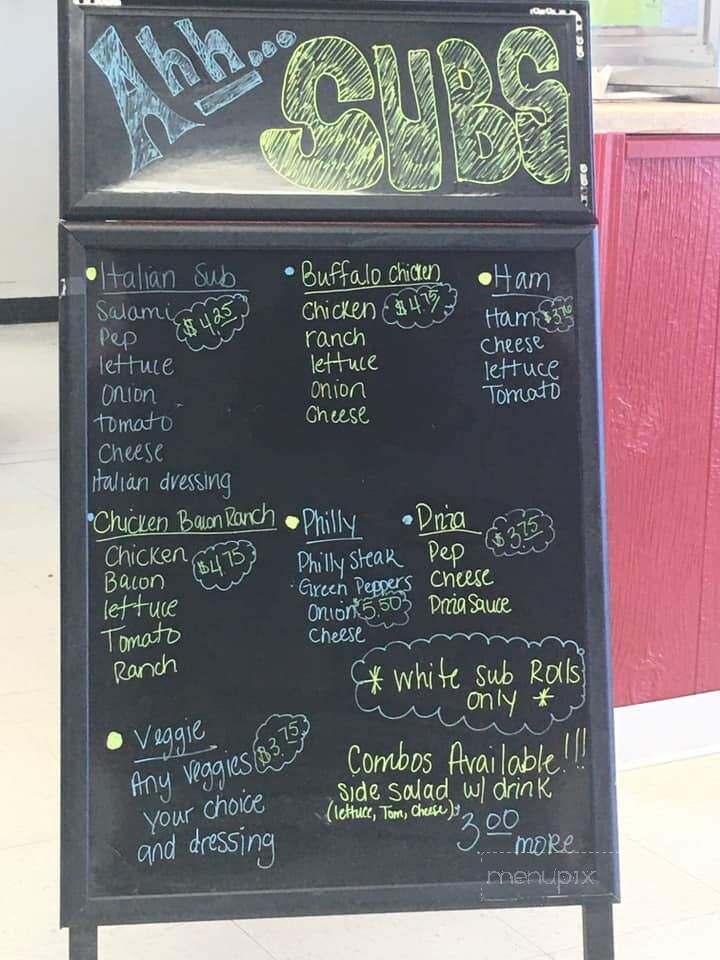 Ahh... SUBS
Italian Sub
$4.25
Salami
Pep
lettuce
Onion
tomato
Cheese
Italian dressing
Buffalo Chicken
$4.75
Chicken
ranch
lettuce
Onion
Cheese
Ham
Ham
cheese
lettuce
Tomato
Chicken Bacon Ranch
$4.75
Chicken
Bacon
lettuce
Tomato
Ranch
Philly
Philly Steak
Green Peppers
Onion $5.50
Cheese
$3.75
Pep
Cheese
Sauce
* White Sub Rolls
only *
Veggie
$3.75
Any Veggies
your choice
and dressing
Combos Available!!!
side salad w/ drink
(lettuce, Tom, Cheese)
3.00
more
menupix